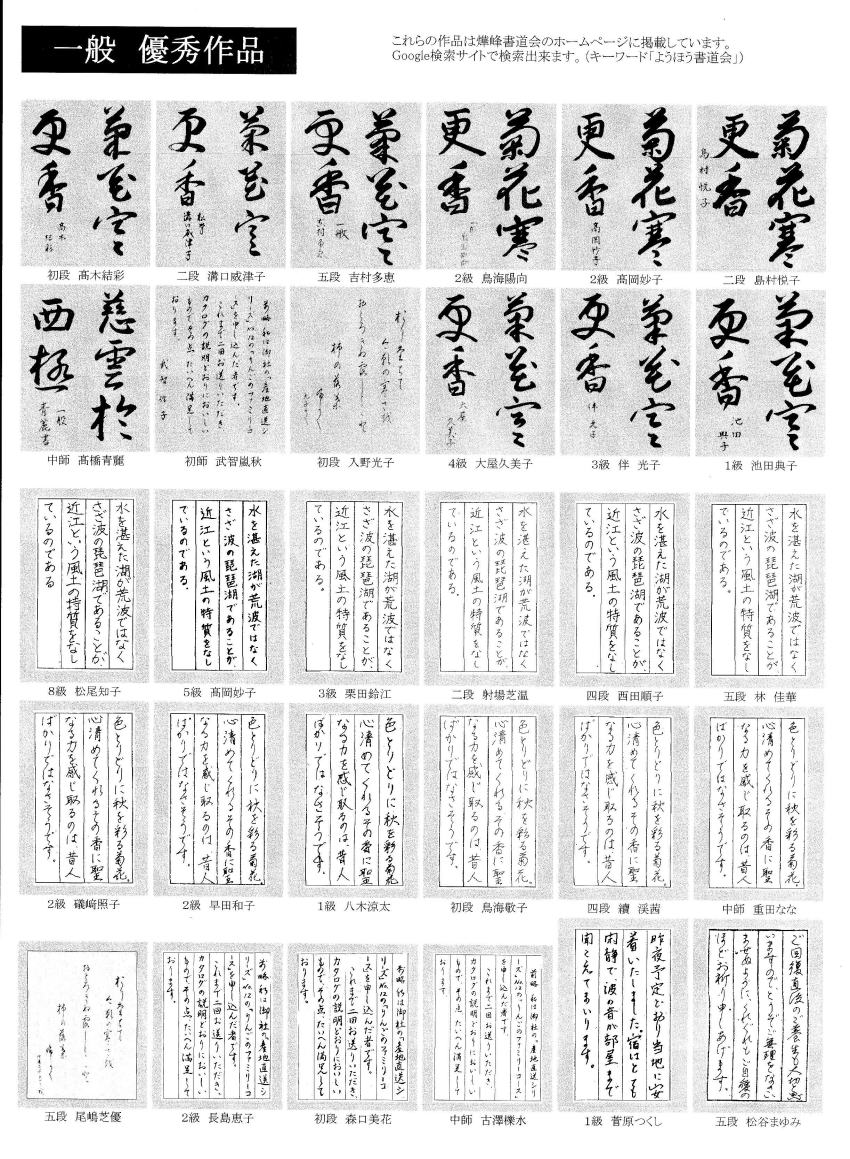 一般 優秀作品
これらの作品は燁峰書道会のホームページに掲載しています。
Google検索サイトで検索出来ます。(キーワード「ようほう書道会」)
菊花寒
更香
初段 髙木結彩
菊花寒
更香
二段 溝口威津子
菊花寒
更香
一般
五段 吉村多恵
菊花寒
更香
2級 鳥海陽向
菊花寒
更香
高岡妙子
2級 髙岡妙子
菊花寒
更香
島村悦子
二段 島村悦子
慈雲於
西極
一般
青麗書
中師 髙橋青麗
前略 私は御社の「産地直送シ
リーズ」No.12の「りんごのファミリーコ
ース」を申し込んだ者です。
これまで二回お送りいただき、
カタログの説明どおりにおいしい
もので、その点、たいへん満足して
おります。
初師 武智嵐秋
初段 入野光子
菊花寒
更香
大屋
久美子
4級 大屋久美子
菊花寒
更香
伴光子
3級 伴 光子
菊花寒
更香
池田
典子
1級 池田典子
水を湛えた湖が荒波ではなく
さざ波の琵琶湖であることが、
近江という風土の特質をなし
ているのである
8級 松尾知子
水を湛えた湖が荒波ではなく
さざ波の琵琶湖であることが、
近江という風土の特質をなし
ているのである。
5級 髙岡妙子
水を湛えた湖が荒波ではなく
さざ波の琵琶湖であることが、
近江という風土の特質をなし
ているのである。
3級 栗田鈴江
水を湛えた湖が荒波ではなく
さざ波の琵琶湖であることが、
近江という風土の特質をなし
ているのである。
二段 射場芝温
水を湛えた湖が荒波ではなく
さざ波の琵琶湖であることが、
近江という風土の特質をなし
ているのである。
四段 西田順子
水を湛えた湖が荒波ではなく
さざ波の琵琶湖であることが、
近江という風土の特質をなし
ているのである。
五段 林 佳華
色とりどりに秋を彩る菊花。
心清めてくれるその香に聖
なる力を感じ取るのは昔人
ばかりではなさそうです。
2級 礒﨑照子
色とりどりに秋を彩る菊花。
心清めてくれるその香に聖
なる力を感じ取るのは昔人
ばかりではなさそうです。
2級 早田和子
色とりどりに秋を彩る菊花。
心清めてくれるその香に聖
なる力を感じ取るのは昔人
ばかりではなさそうです。
1級 八木涼太
色とりどりに秋を彩る菊花。
心清めてくれるその香に聖
なる力を感じ取るのは昔人
ばかりではなさそうです。
初段 鳥海敬子
色とりどりに秋を彩る菊花。
心清めてくれるその香に聖
なる力を感じ取るのは昔人
ばかりではなさそうです。
四段 續 渓茜
色とりどりに秋を彩る菊花。
心清めてくれるその香に聖
なる力を感じ取るのは昔人
ばかりではなさそうです。
中師 重田なな
五段 尾嶋芝優
前略 私は御社の「産地直送シ
リーズ」No.12の「りんごのファミリーコ
ース」を申し込んだ者です。
これまで二回お送りいただき、
カタログの説明どおりにおいしい
もので、その点、たいへん満足して
おります。
2級 長島恵子
前略 私は御社の「産地直送シ
リーズ」No.12の「りんごのファミリーコ
ース」を申し込んだ者です。
これまで二回お送りいただき、
カタログの説明どおりにおいしい
もので、その点、たいへん満足して
おります。
初段 森口美花
前略 私は御社の「産地直送シリ
ーズ」No.12の「りんごのファミリーコース」
を申し込んだ者です。
これまで二回お送りいただき、
カタログの説明どおりにおいしい
もので、その点、たいへん満足して
おります。
中師 古澤櫟水
昨夜予定どおり当地に安
着いたしました。宿はとても
閑静で波の音が部屋まで
聞こえてまいります。
1級 菅原つくし
ご回復直後のご養生も大切と思
いますのでどうぞご無理をなさい
ませぬように、くれぐれもご自愛の
ほどお祈り申しあげます。
五段 松谷まゆみ